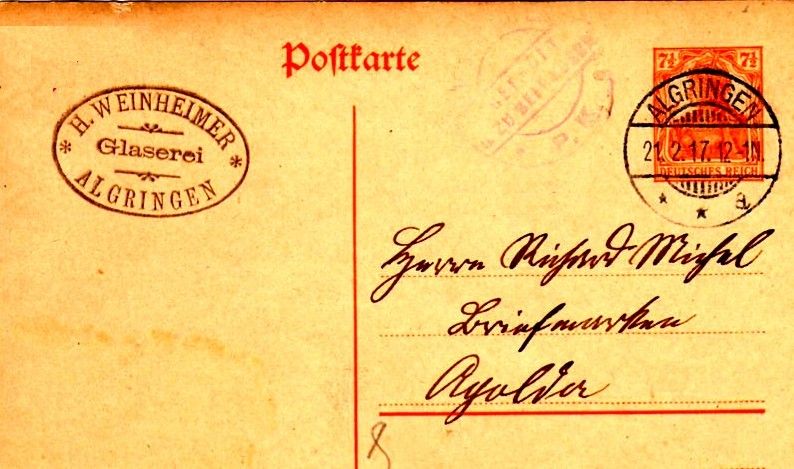 Postkarte
H. WEINHEIMER
Glaserei
ALGRINGEN
7½ 7½
ALGRINGEN
21. 2. 17. 12-1N.
DEUTSCHES REICH
* * a
Herrn Richard Michel
Briefmarken
Apolda